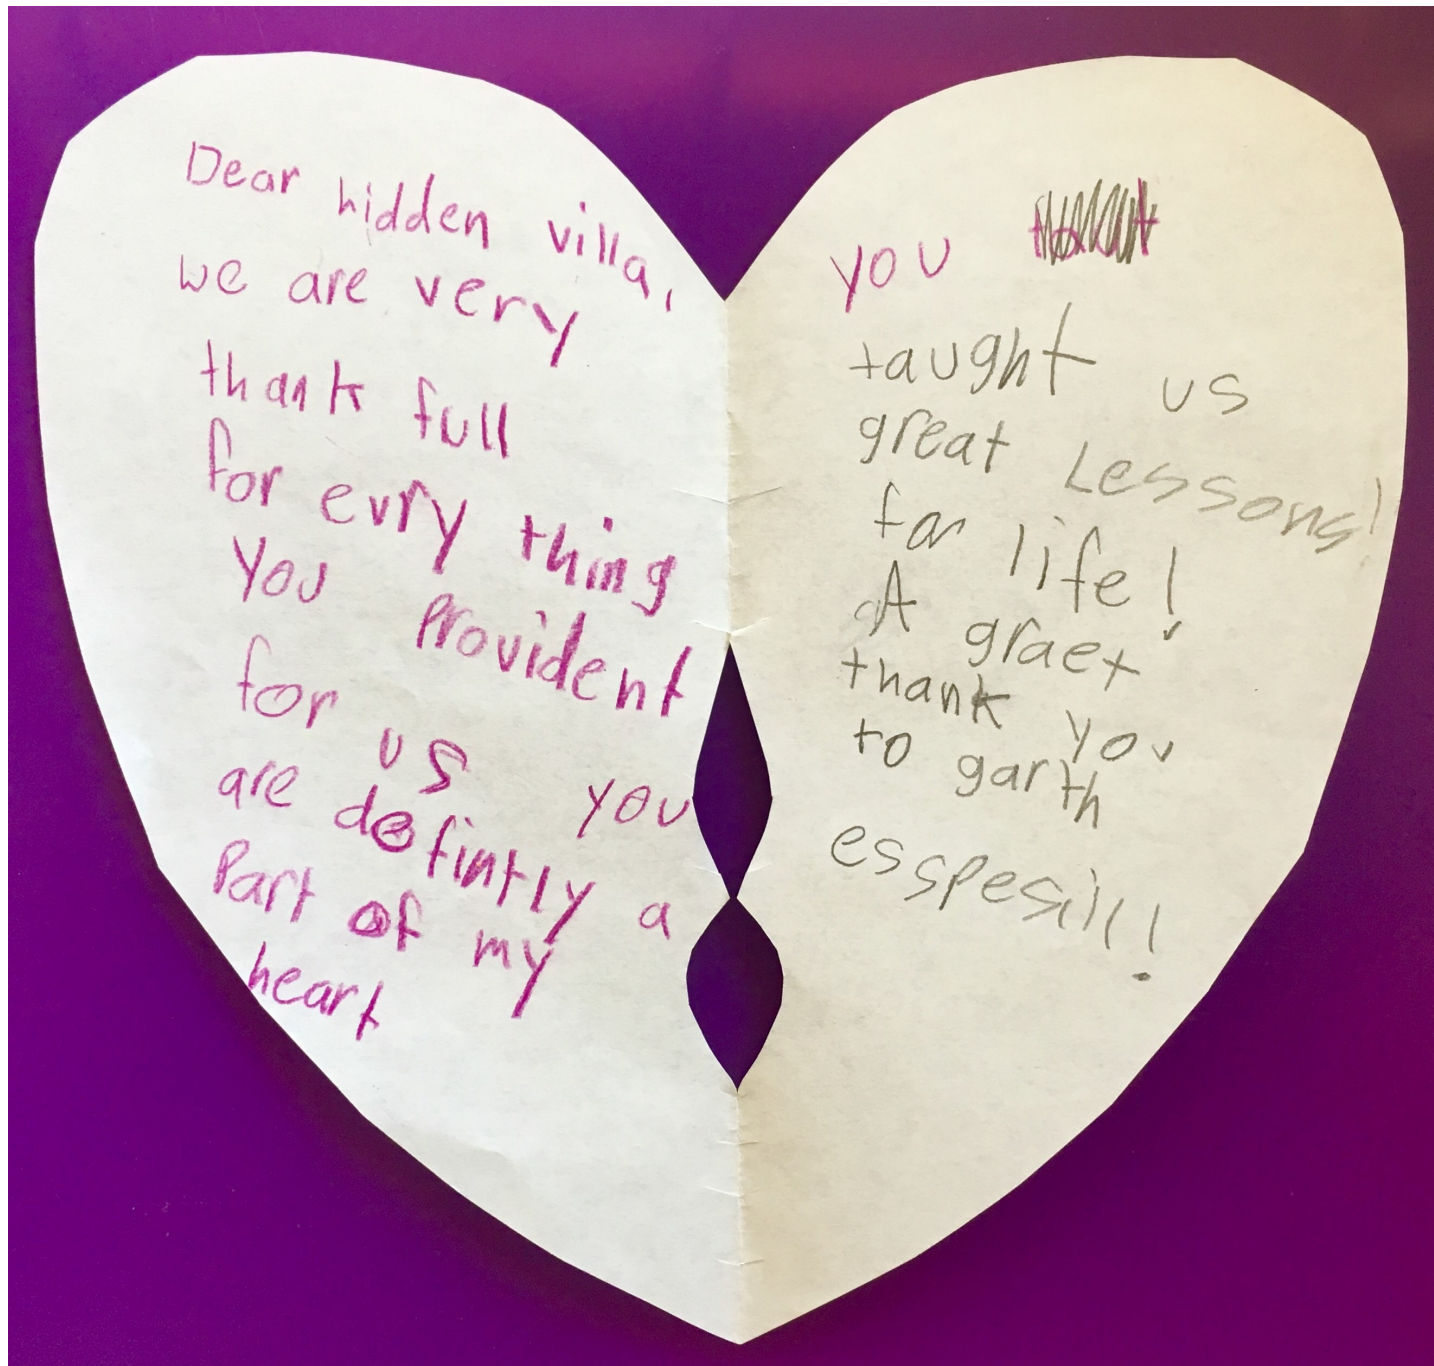 Dear hidden villa,
we are very
thank full
for evry thing
you provident
for us you
are defintly a
Part of my
heart
you
taught us
great Lessons!
for life!
A graet
thank you
to garth
esspesill!